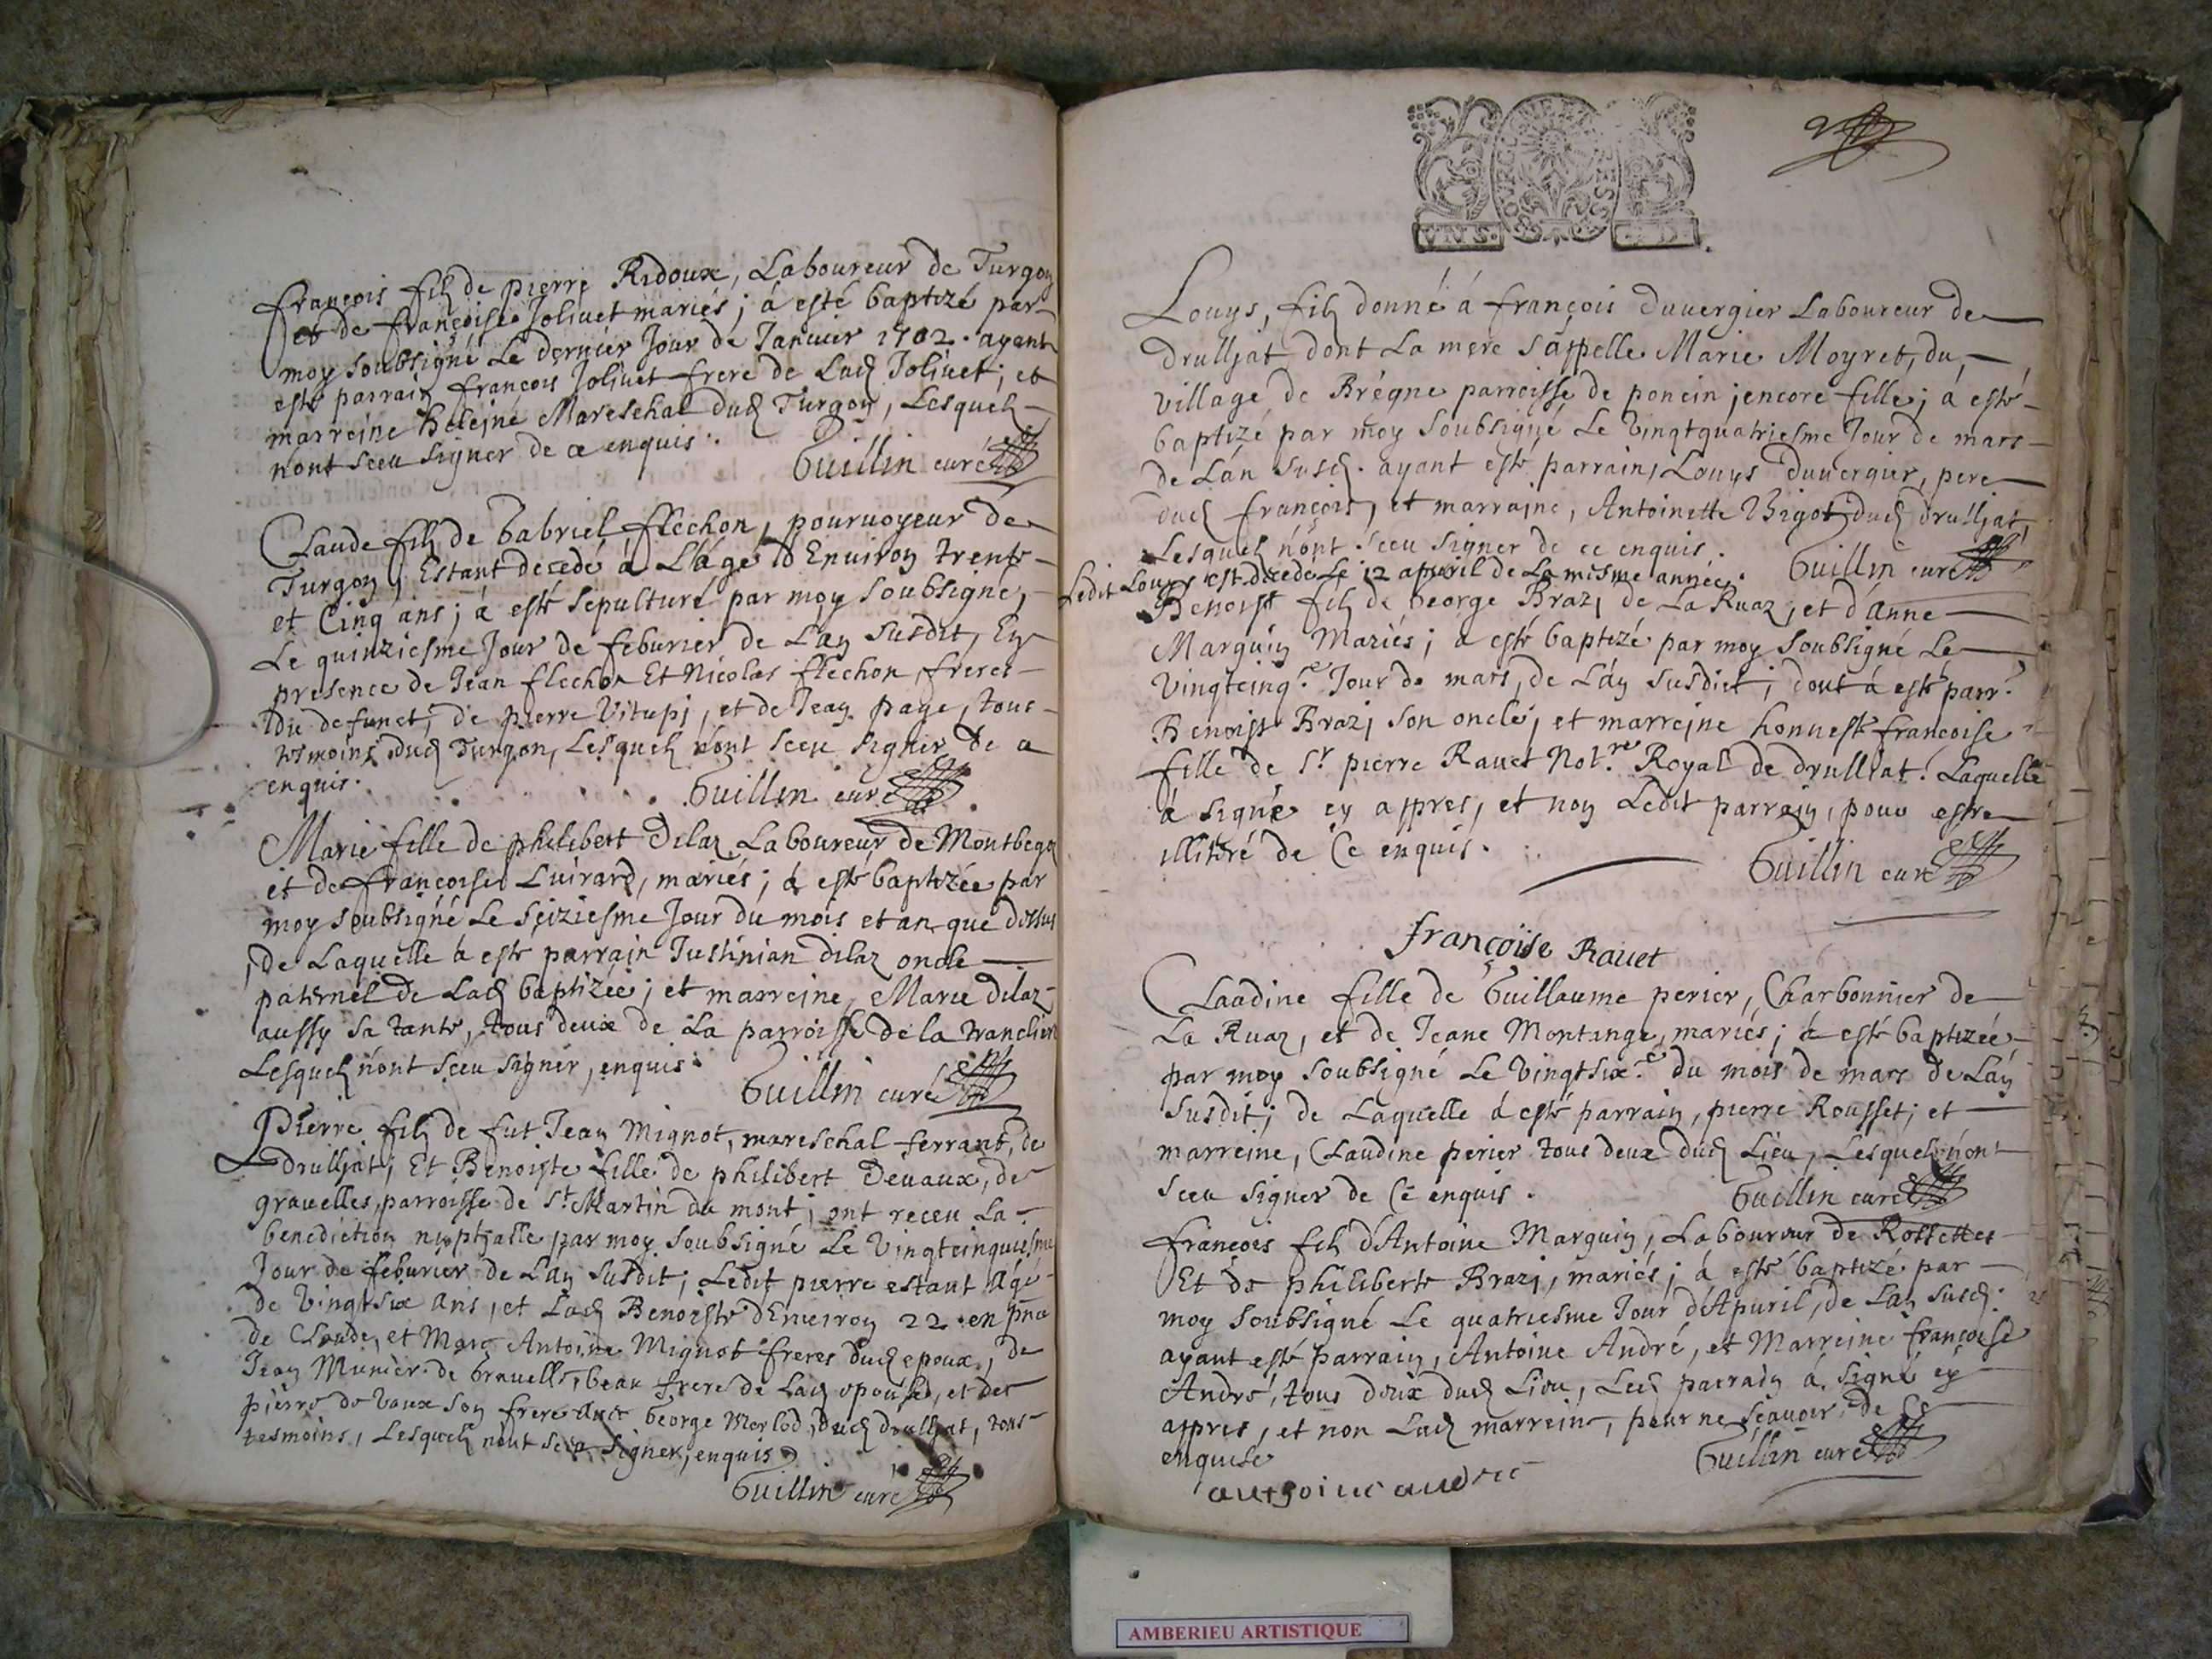 françois fils de pierre Ridoux, Laboureur de Turgon
et de françoise Joliuet mariés; á esté baptizé par
moy soubsigné Le dernier Jour de Januier 1702. ayant
esté parrain françois Joliuet frere de Lad. Joliuet; et
marreine heleine Mareschal dud. Turgon, Lesquels
n'ont sceu signer de ce enquis.
Guillin curé
Claude fils de Gabriel flechon, pouruoyeur de
Turgon, Estant decedé á L'áge d'Enuiron trente
et Cinq ans; á esté sepulturé par moy soubsigné,
Le quinziesme Jour de feburier de L'an susdit, En
presence de Jean flechon Et Nicolas flechon, freres
du defunct, de pierre Vitupj, et de Jean page, tous
tesmoins dud. Turgon, Lesquels n'ont sceu signer de ce
enquis.
Guillin curé
Marie fille de philibert Dilaz Laboureur de Montbegoz
et de françoise Luirard, mariés; á esté baptizée par
moy soubsigné Le seiziesme Jour du mois et an que dessus
, de Laquelle á esté parrain Justinian dilaz oncle
paternel de Lad. baptizée; et marreine, Marie dilaz
aussy sa tante, tous deux de La parroisse de la tranclier
Lesquels n'ont sceu signer, enquis.
Guillin curé
Pierre fils de fut Jean Mignot, mareschal ferrant, de
drulljat; Et Benoiste fille de philibert Deuaux, de
grauelles, parroisse de St. Martin du mont; ont receu La
benediction nuptjalle par moy soubsigné Le Vingtcinquiesme
Jour de feburier de L'an susdit; Ledit pierre estant âgé
de Vingtsix ans, et Lad. Benoiste d'Enuiron 22. en pnce
de Claude, et Marc Antoine Mignot freres dud. epoux, de
Jean Munier de Grauelle, beau frere de Lad. epouse, et de
pierre de Vaux son frere auec George Morlod, dud. drulljat, tous
tesmoins, Lesquels n'ont sceu signer, enquis
Guillin curé
VINS. DE.
Louys, fils donné á françois Duuergier Laboureur de
drulljat, dont La mere s'appelle Marie Moyret, du,
village de Brégne parroisse de poncin; encore fille; á esté
baptizé par moy soubsigné Le Vingtquatriesme Jour de mars
de L'an susd. ayant esté parrain, Louys duuergier, pere
dud. françois, et marraine, Antoinette Bigot dud. drulljat,
Lesquels n'ont sceu signer de ce enquis. Guillin curé
Ledit Louys est decedé Le 12 apuril de La mesme année.
Benoist fils de George Brazj de La Ruaz, et d'Anne
Marguin Mariés; á esté baptizé par moy soubsigné Le
Vingtcinq.e Jour de mars, de L'an susdict; dont á esté parr.
Benoist Brazj son oncle; et marreine honneste françoise
fille de Sr. pierre Rauet Not.re Royal de drulliat. Laquelle
á signé cy appres, et non Ledit parrain, pour estre
illiteré de Ce enquis.
Guillin curé
françoise Rauet
Claudine fille de Guillaume perier, Charbonnier de
La Ruaz, et de Jeane Montange, mariés; á esté baptizée
par moy soubsigné Le Vingtsix.e du mois de mars de L'an
susdit; de Laquelle á esté parrain, pierre Rousset; et
marreine, Claudine perier tous deux dud. Lieu, Lesquels n'ont
sceu signer de Ce enquis.
Guillin curé
françois fils d'Antoine Marguin, Laboureur de Rossettes
Et de philiberte Brazj, mariés; á esté baptizé par
moy soubsigné Le quatriesme Jour d'Apuril, de L'an susd.
ayant esté parrain, Antoine André, et Marreine françoise
André, tous deux dud. Lieu, Led. parrain á signé cy
appres, et non Lad. marreine, pour ne sçauoir, de Ce
enquise
Guillin curé
antoine andre
AMBERIEU ARTISTIQUE